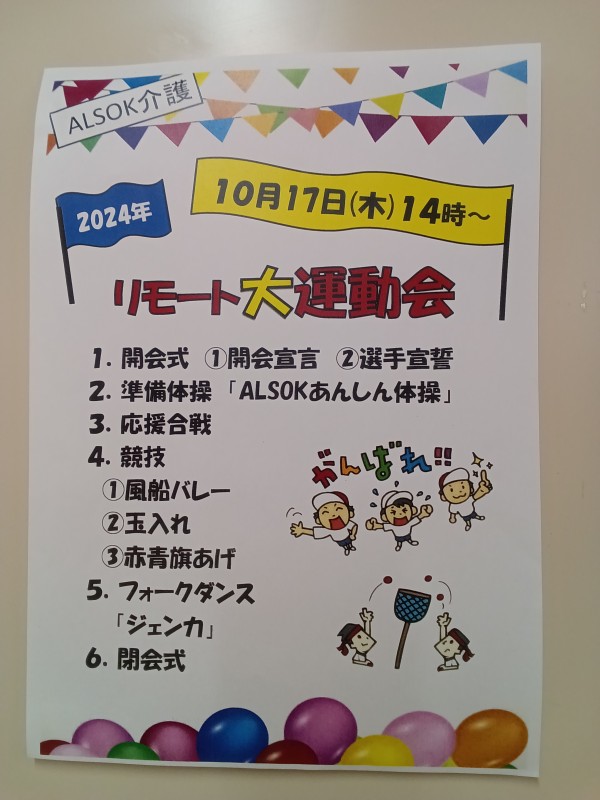 ALSOK介護
2024年
10月17日(木)14時～
リモート大運動会
1. 開会式 ①開会宣言 ②選手宣誓
2. 準備体操 「ALSOKあんしん体操」
3. 応援合戦
4. 競技
がんばれ!!
①風船バレー
②玉入れ
③赤青旗あげ
5. フォークダンス
「ジェンカ」
6. 閉会式